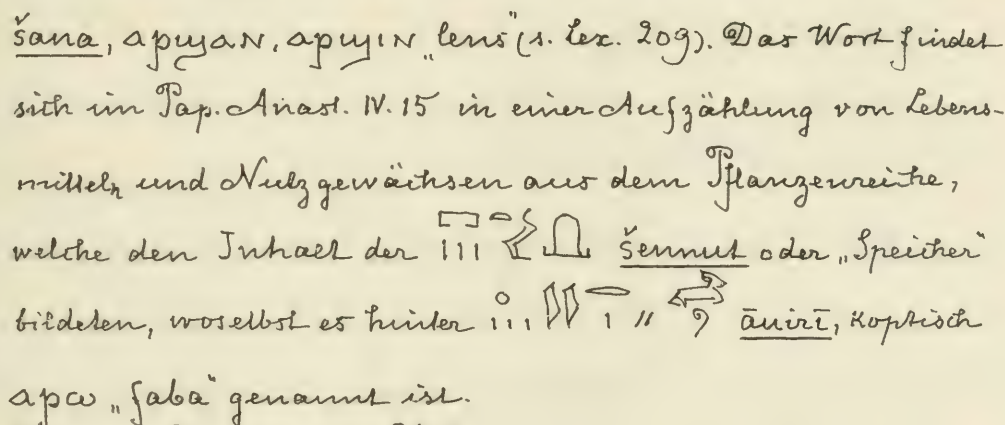 šana, ⲁⲣϣⲁⲛ, ⲁⲣϣⲓⲛ „lens“ (s. Lex. 209). Das Wort findet
sich im Pap. Anast. IV. 15 in einer Aufzählung von Lebens-
mitteln und Nutzgewächsen aus dem Pflanzenreiche,
welche den Inhalt der šennut oder „Speicher“
bildeten, woselbst es hinter āuirī, Koptisch
ⲁⲣⲱ „faba“ genannt ist.